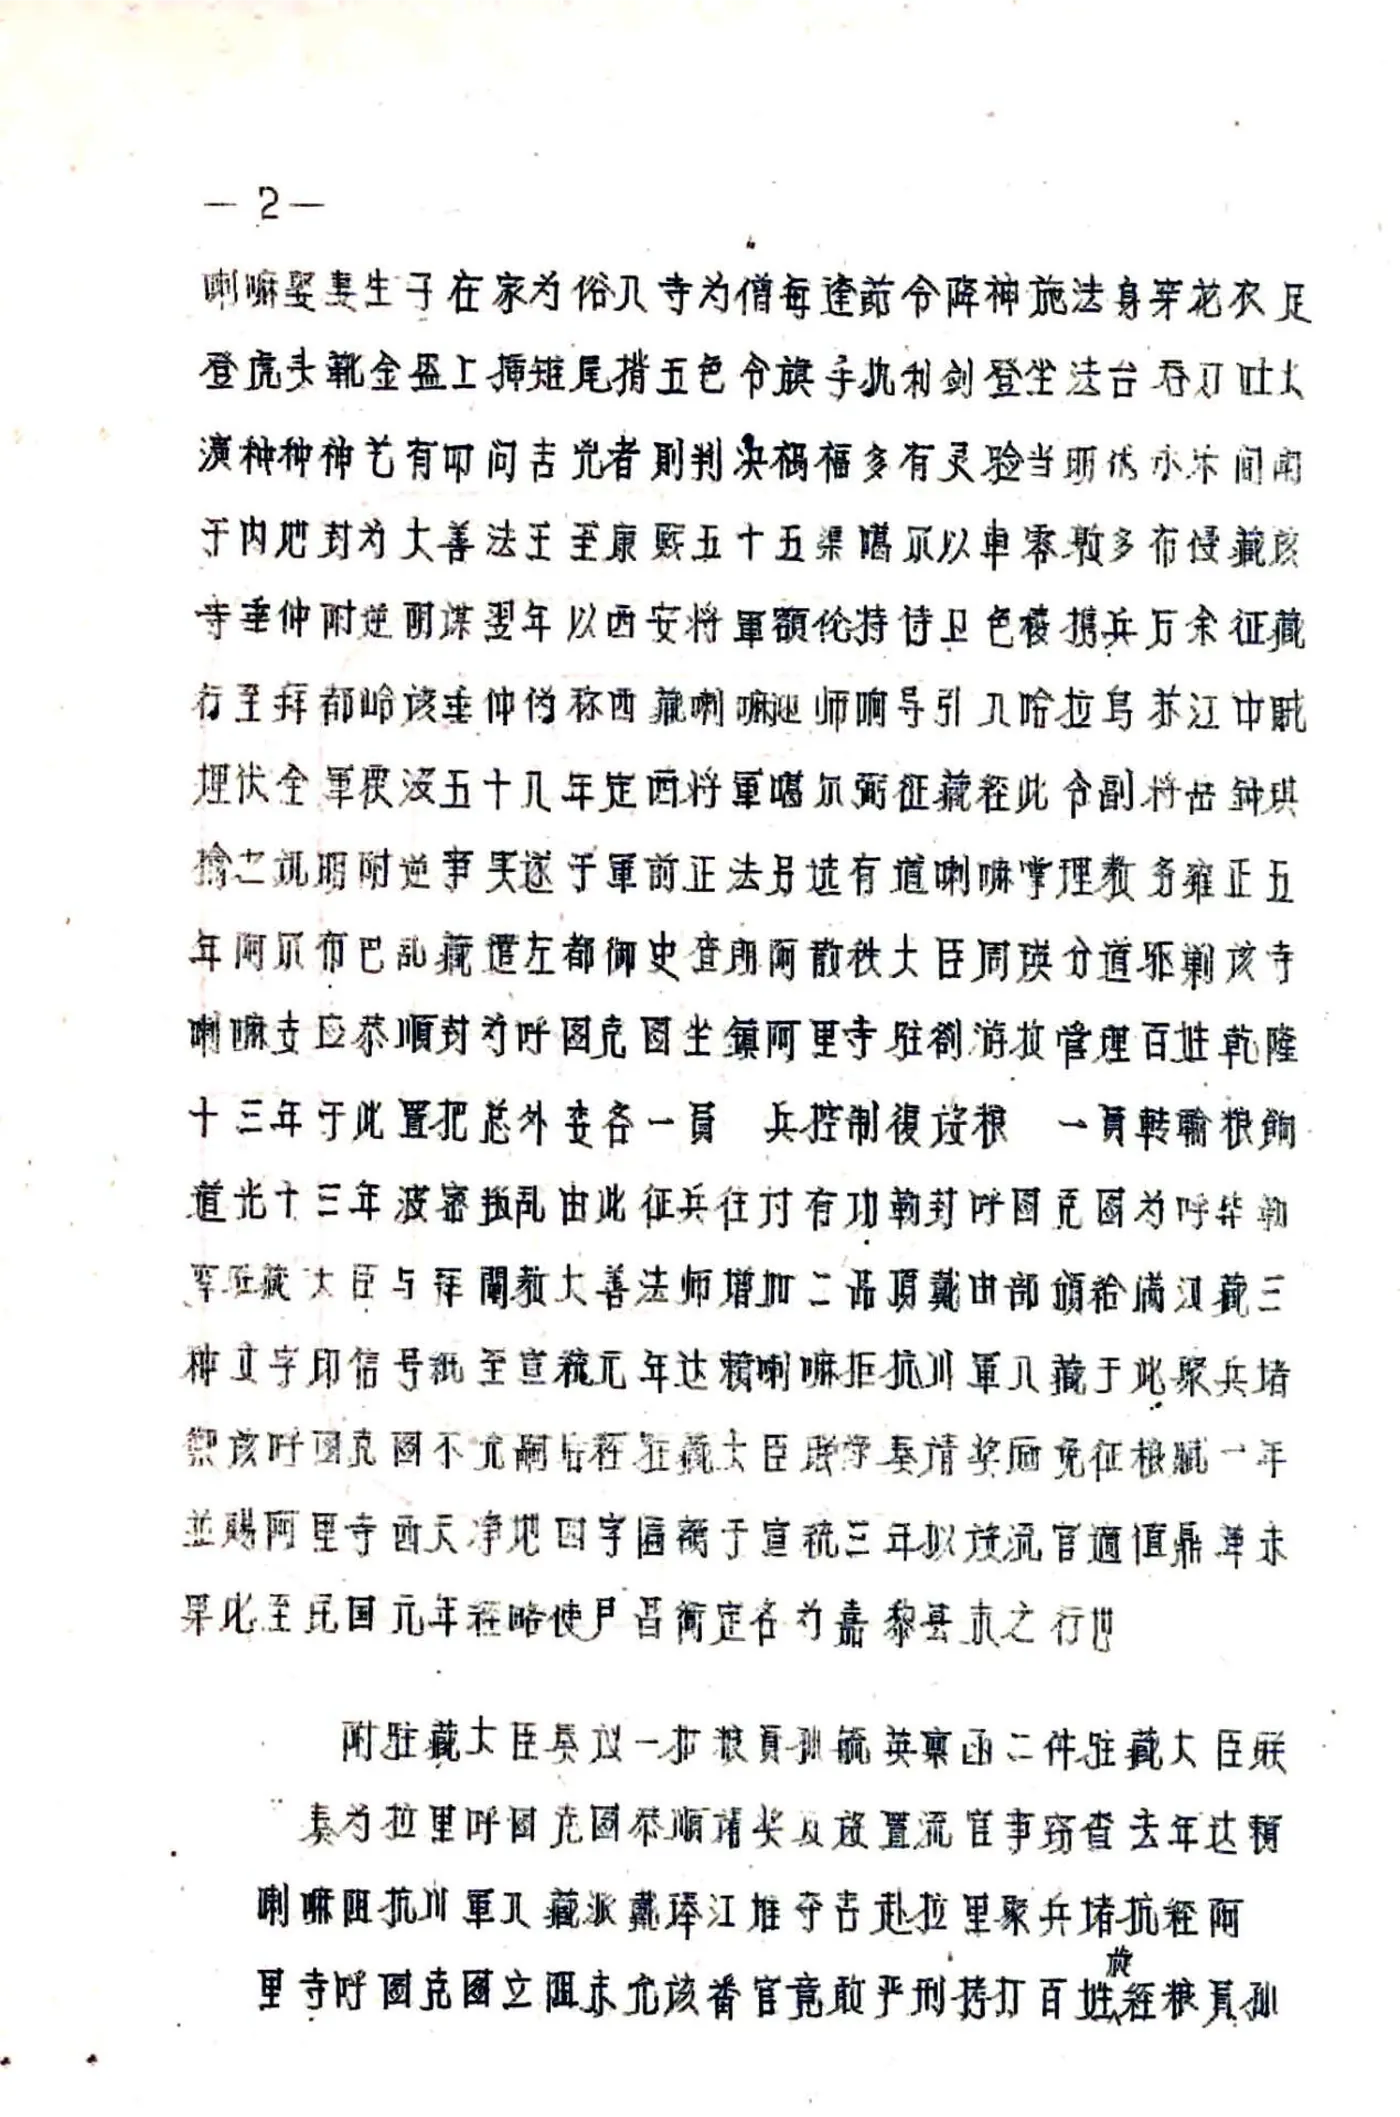 —2—
喇嘛娶妻生子在家为俗入寺为僧每逢節令降神施法身穿花衣足
登虎头靴金盔上揷雉尾揹五色令旗手执利剑登坐法台吞刀吐火
演种种神艺有叩问吉兇者則判决禍福多有灵验当明 永乐间闻
于内地封为大善法王至康熙五十五渠噶尔以車零敦多布侵藏该
寺垂仲附逆阴谋翌年以西安将軍額伦持侍卫色棱携兵万余征藏
行至拜都岭该垂仲伪称西藏喇嘛迎师响导引入哈拉乌苏江中賊
埋伏全軍覆没五十九年定西将軍噶尔弼征藏經此令副将岳鈡琪
擒之讯明附逆事实遂于軍前正法另选有道喇嘛掌理教务雍正五
年阿尔布巴乱藏遣左都御史查朗阿散秩大臣周瑛分道驱剿该寺
喇嘛支应恭順封为呼图克图坐鎮阿里寺驻劄游牧管理百姓乾隆
十三年于此置把总外委各一員 兵控制復设粮 一員転輸粮餉
道光十三年波密叛乱由此征兵往讨有功勅封呼图克图为呼毕勒
罕驻藏大臣与拜闡教大善法师增加二品頂戴由部頒给满汉藏三
种文字印信号紙至宣統元年达赖喇嘛拒抗川軍入藏于此聚兵堵
禦该呼图克图不允嗣后經驻藏大臣联 奏请奖励免征粮賦一年
並賜阿里寺西天净地四字匾額于宣统三年拟设流官適值鼎革未
果此至民国元年經略使尹昌衡定名为嘉黎县未之行也
附驻藏大臣奏议一折粮員孙毓英禀函二件驻藏大臣联
奏为拉里呼图克图恭順请奖及設置流官事窃查去年达赖
喇嘛阻抗川軍入藏派戴琫江堆夺吉赴拉里聚兵堵抗經阿
里寺呼图克图立阻未允该番官竟敢严刑拷打百姓旋經粮員孙